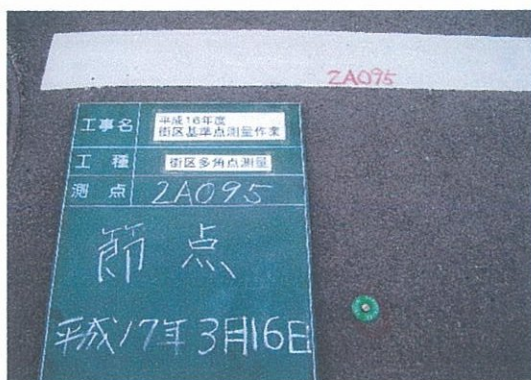 2A095
工事名
平成16年度
街区基準点測量作業
工種
街区多角点測量
測点
2A095
節点
平成17年3月16日